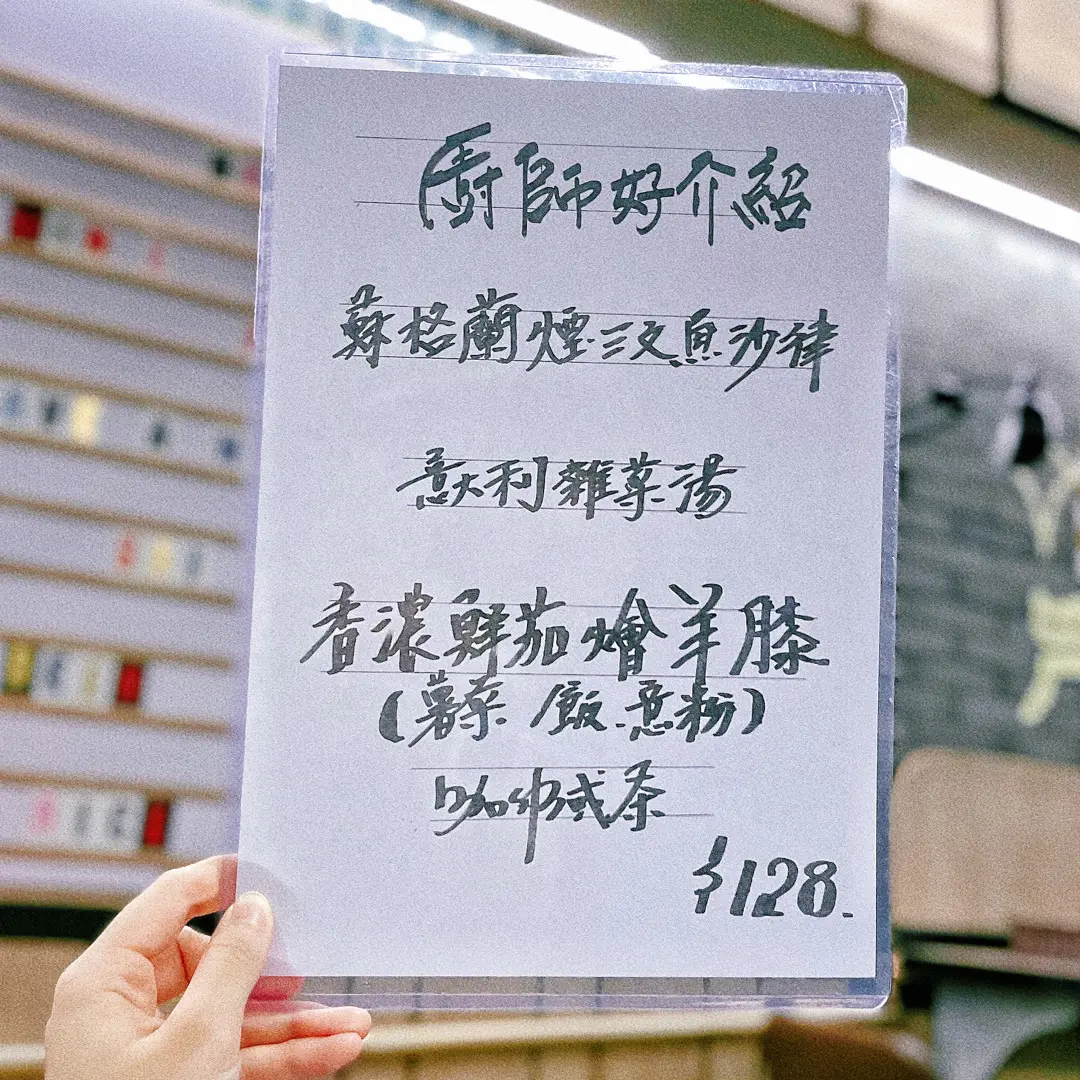 廚師好介紹
蘇格蘭煙三文魚沙律
意大利雜菜湯
香濃鮮茄燴羊膝
(薯菜 / 飯.意粉)
咖啡或茶
$128.